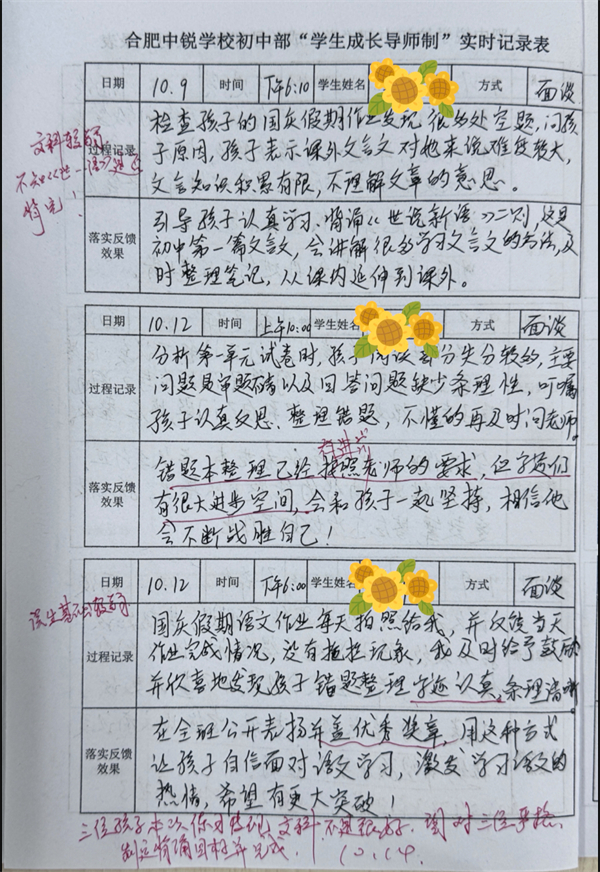 合肥中锐学校初中部“学生成长导师制”实时记录表
日期 10.9 时间 下午6:10 学生姓名 方式 面谈
过程记录
检查孩子的国庆假期作业发现很多处空题,问孩
子原因,孩子表示课外文言文对她来说难度较大,
文言知识积累有限,不理解文章的意思。
落实反馈效果
引导孩子认真学习、背诵《世说新语》二则,这是
初中第一篇文言文,会讲解很多学习文言文的方法,及
时整理笔记,从课内延伸到课外。
日期 10.12 时间 上午10:00 学生姓名 方式 面谈
过程记录
分析第一单元试卷时,孩子阅读部分失分较多,主要
问题是审题不清以及回答问题缺少条理性,叮嘱
孩子认真反思、整理错题,不懂的再及时问老师。
落实反馈效果
错题本整理已经按照老师的要求,但字
有很大进步空间,会和孩子一起坚持,相信他
会不断战胜自己!
日期 10.12 时间 下午6:00 学生姓名 方式 面谈
过程记录
国庆假期语文作业每天拍照给我,并反馈当天
作业完成情况,没有拖拉现象,我及时给予鼓励
并欣喜地发现孩子错题整理字迹认真,条理清晰。
落实反馈效果
在全班公开表扬并盖优秀奖章,用这种方式
让孩子自信面对语文学习,激发学习语文的
热情,希望有更大突破!
该生基础较
三位孩子
10.14.